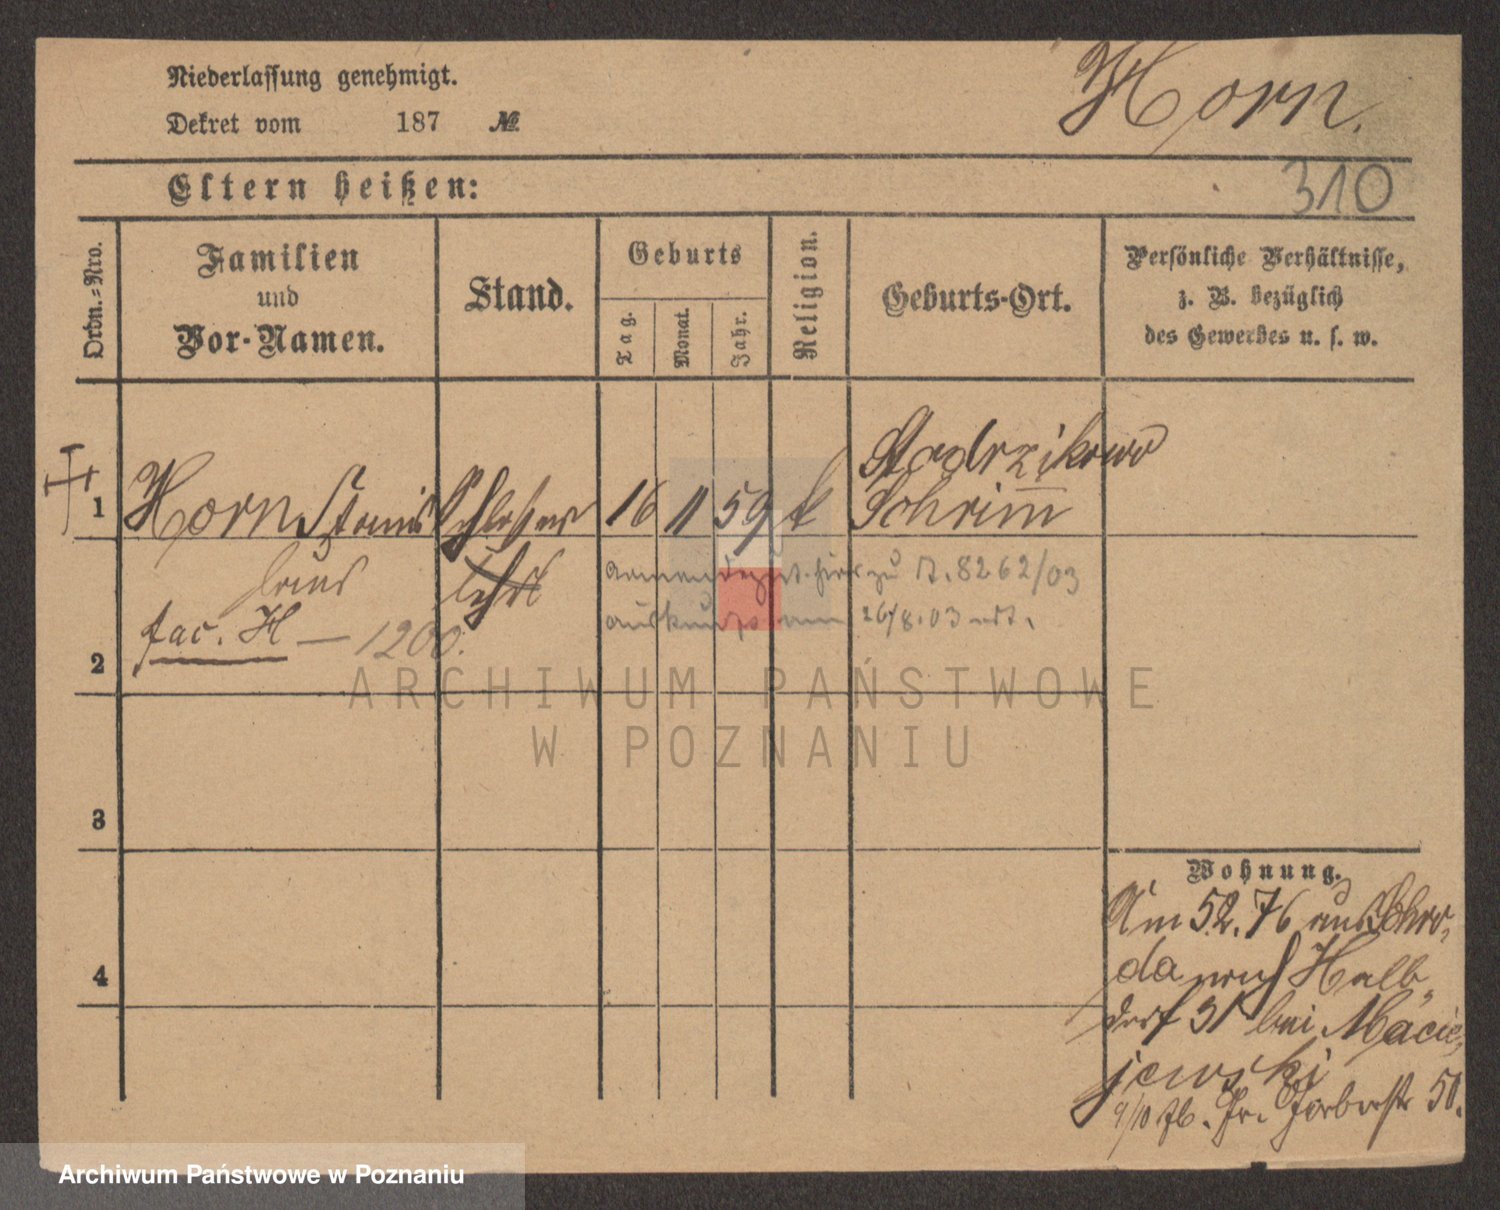 Niederlassung genehmigt.
Horn.
Dekret vom 187 №
Eltern heißen:
310
Ordn.=Nro.
Familien
und
Vor-Namen.
Stand.
Geburts
Tag.
Monat.
Jahr.
Religion.
Geburts-Ort.
Persönliche Verhältnisse,
z. B. bezüglich
des Gewerbes u. s. w.
1 Horn Stanis Schlosser 16 11 59 k
Schrimm
laus
zu 8262/03
fac. H — 1200.
26/8.03
2
3
4
ARCHIWUM PAŃSTWOWE
W POZNANIU
Wohnung.
Am 5.2.76 aus Schro-
da nach Halb-
dorf 31 bei Macie-
jewski
9/10 76. Gr. Gerberstr 50.
Archiwum Państwowe w Poznaniu